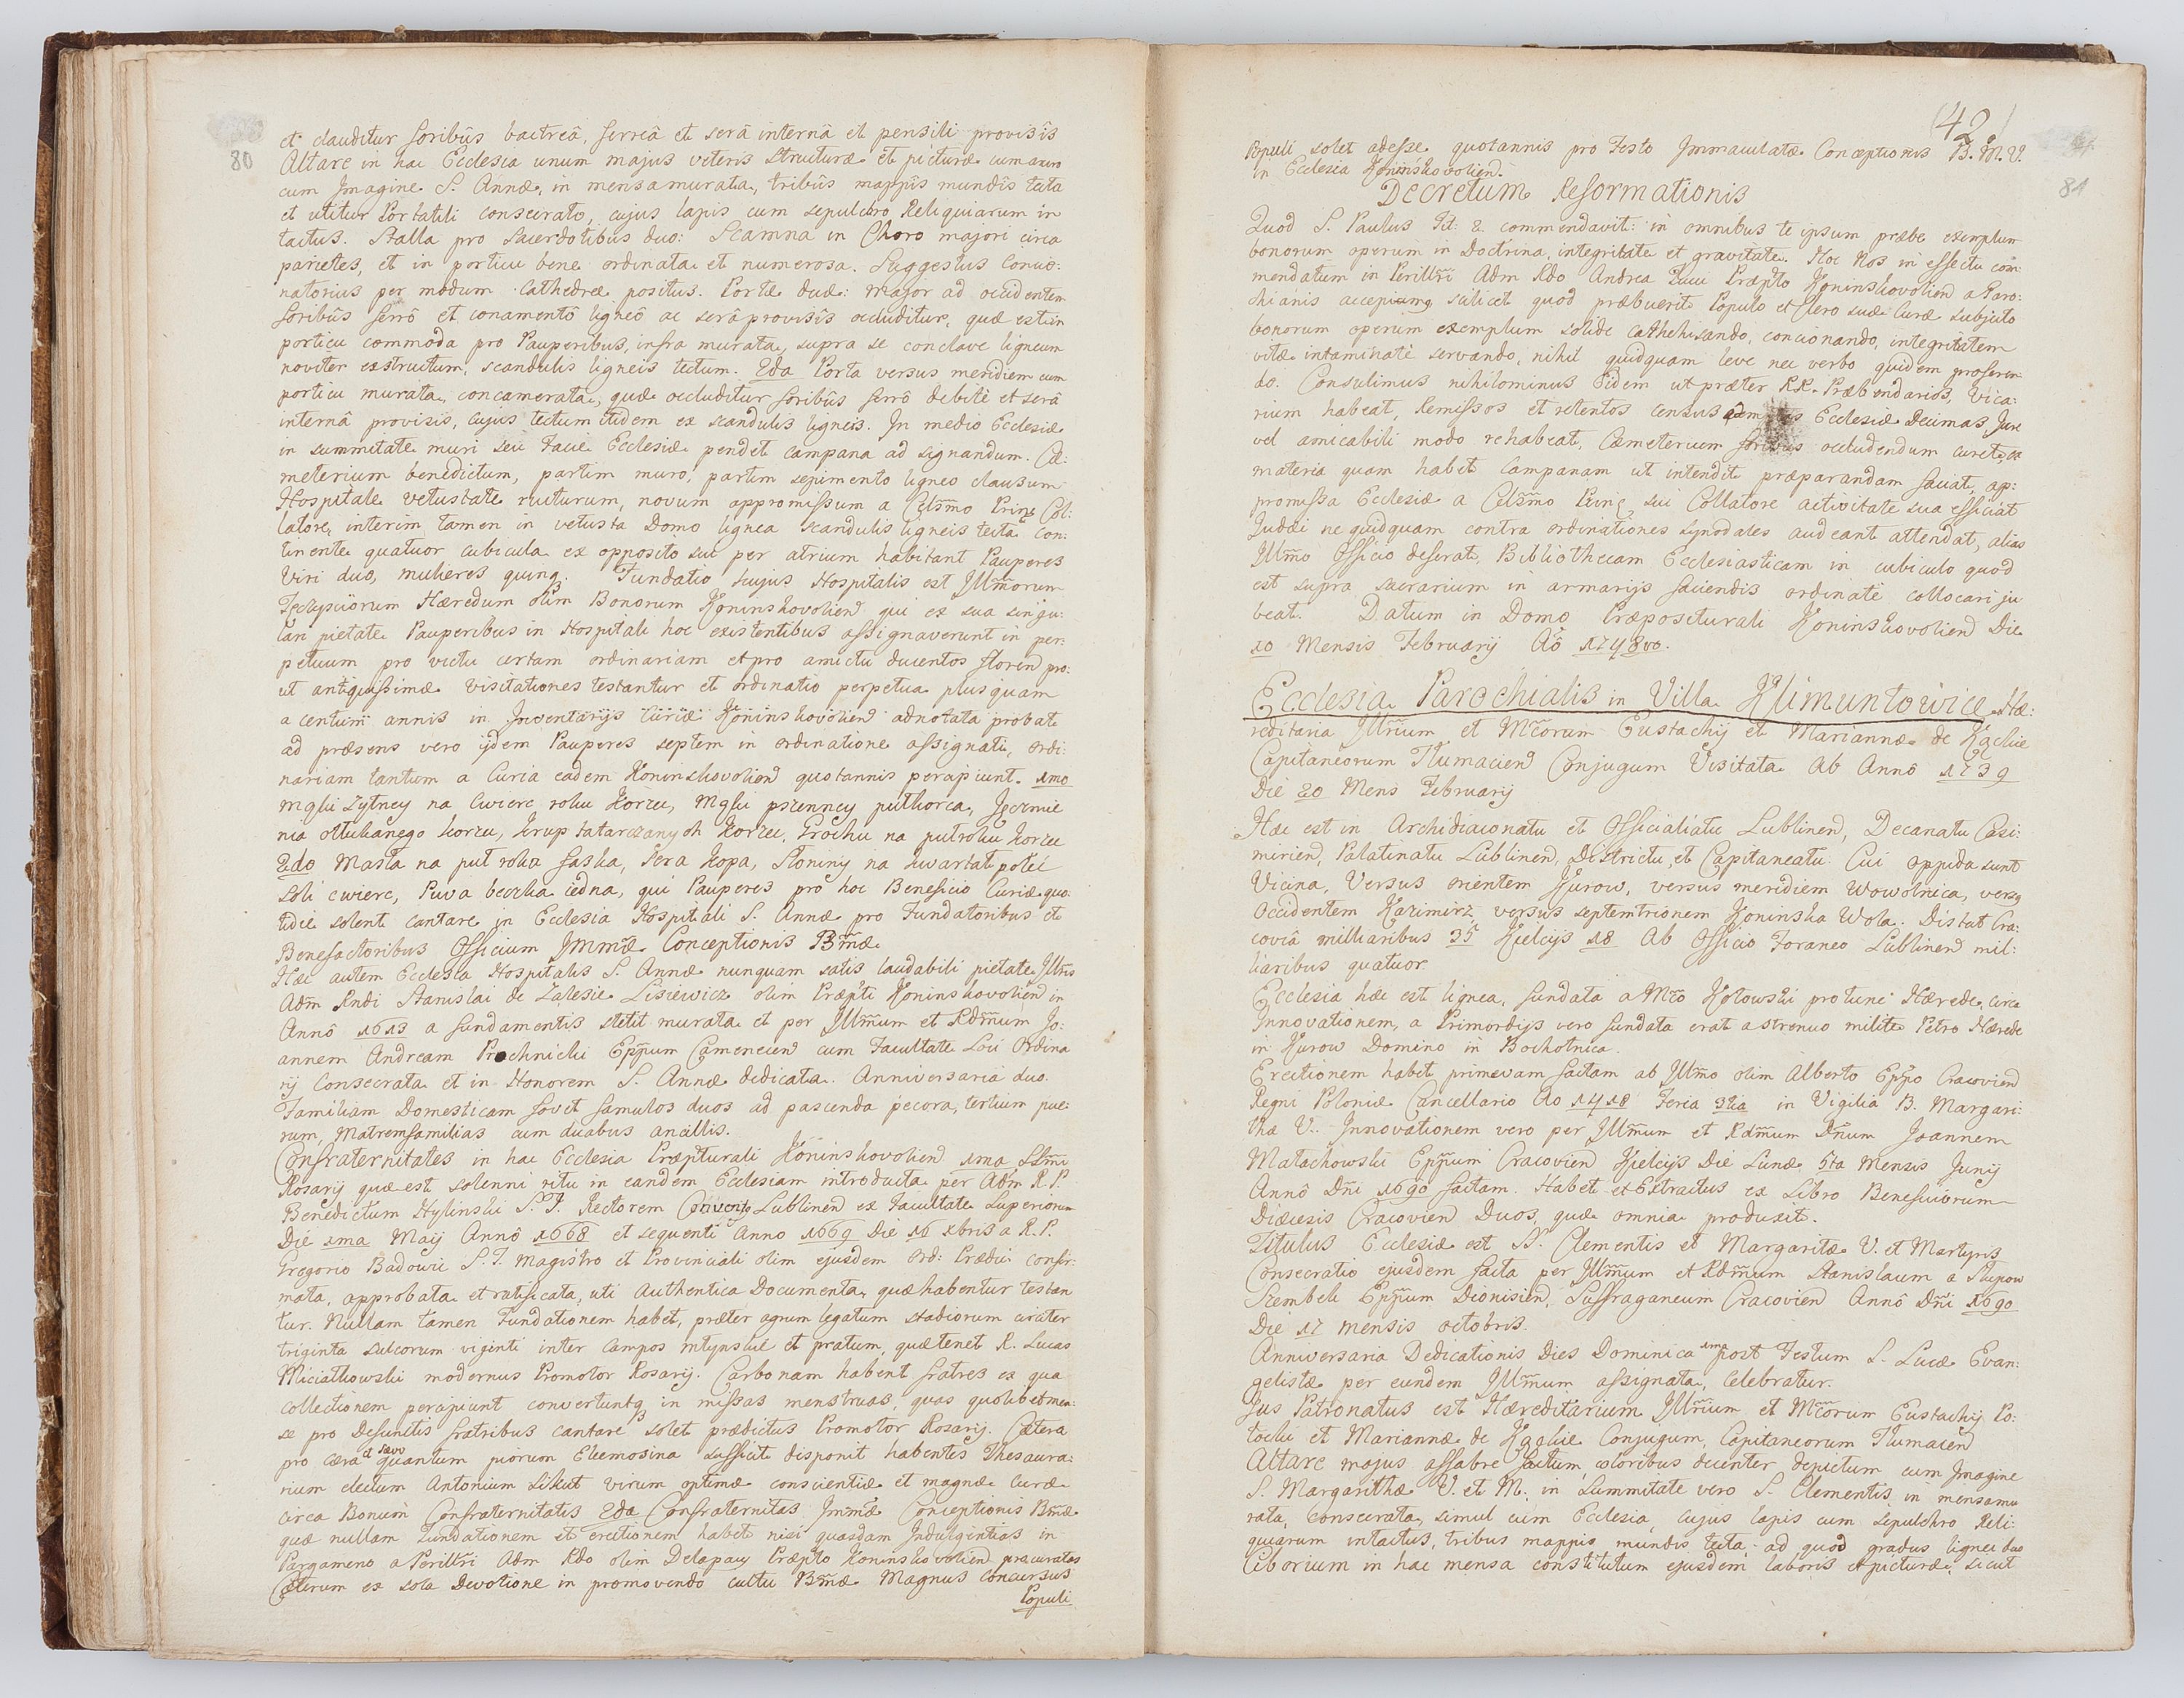 80
et clauditur foribûs baltreâ, ferreâ et serâ internâ et pensili provisîs
Altare in hac Ecclesia unum majus veteris structuræ et picturæ
cum Imagine S. Annæ, in mensa murata, tribûs mappîs mundîs tecta
et utitur Portatili consecrato, cujus lapis cum sepulchro Reliquiarum in
tactus. Stalla pro Sacerdotibus duo: Scamna in Choro majori circa
parietes, et in porticu bene ordinata et numerosa. Suggestus Concio:
natorius per modum Cathedræ positus. Portæ duæ: major ad occidentem
foribûs ferrô et conamentô ligneô ac serâ provisîs occluditur, quæ est in
porticu commoda pro Pauperibus, infra murata, supra se conclave ligneum
noviter exstructum, scandulis ligneis tectum. 2da Porta versus meridiem cum
porticu murata, concamerata, quæ occluditur foribûs ferrô debitè et serâ
internâ provisis, cujus tectum itidem ex scandulis ligneis. In medio Ecclesiæ
in summitate muri seu Faciê Ecclesiæ pendet campana ad signandum. Cæ:
meterium benedictum, partim muro, partim sepimento ligneo clausum
Hospitale vetustate ruiturum, novum appromissum a Celsm̃o Princ Col:
latore, interim tamen in vetusta Domo lignea scandulis ligneis tecta con:
tinente quatuor cubicula ex opposito sui per atrium habitant Pauperes
Viri duo, mulieres quinq. Fundatio hujus Hospitalis est Illm̃orum
Tęczynsciorum Hæredum olim Bonorum Koninskovolien̄ qui ex sua singu:
lari pietate Pauperibus in Hospitali hoc existentibus assignaverunt in per:
petuum pro victu certam ordinariam et pro amictu ducentos floren̄ pro:
ut antiquissimæ visitationes testantur et ordinatio perpetua plusquam
a centum annis in Inventarijs Curiæ Koninskovolien̄ adnotata probat
ad præsens vero ijdem Pauperes septem in ordinatione assignati, ordi:
nariam tantum a Curia eadem Koninskovolien̄ quotannis percipiunt. 1mo
mąki Zytney na cwierc roku Korzec, Mąki pszenney pułkorca, Jęczmie
nia otłukanego korzec, krup tatarczanych korzec, Grochu na puł roku korzec
2do Masła na puł roku faska, sera kopa, Słoniny na kwartał połeć
soli cwierc, Piwa beczka iedna, qui Pauperes pro hoc Beneficio Curiæ quo:
tidie solent cantare in Ecclesia Hospitali S. Annæ pro Fundatoribus et
Benefactoribus Officium Imm̃æ Conceptionis Bm̃æ
Hæc autem Ecclesia Hospitalis S. Annæ nunquam satis laudabili pietate Illtris
Adm̃ Rndi Stanislai de Zalesie Lisiewicz olim Præpti Koninskovolien̄ in
Annô 1613 a fundamentis stetit murata et per Illm̃um et Rdm̃um Jo:
annem Andream Prochnicki Epp̃um Camenecien̄ cum Facultate Loci Ordina
rij Consecrata et in Honorem S. Annæ dedicata. Anniversaria duo
Familiam Domesticam fovet famulos duos ad pascenda pecora, tertium pue:
rum, Matremfamilias cum duabus ancillis.
Confraternitates in hac Ecclesia Præpturali Koninskovolien̄ 1ma SSm̃i
Rosarij quæ est solenni ritu in eandem Ecclesiam introducta per Adm̃ R.P.
Benedictum Hylinski S.T. Rectorem Convent Lublinen̄ ex Facultate Superiorum
Die 1ma Maij Annô 1668 et sequenti Anno 1669 Die 16 xbris a R.P.
Gregorio Badowic S.T. Magistro et Provinciali olim ejusdem Ord: Prædic: confir:
mata, approbata et ratificata, uti Authentica Documenta, quæ habentur testan
tur. Nullam tamen Fundationem habet, præter agrum legatum stadiorum circiter
triginta sulcorum viginti inter Campos młynskie et pratum, quæ tenet R. Lucas
Miciałkowski modernus Promotor Rosarij. Carbonam habent fratres ex qua
collectionem percipiunt convertuntq in missas menstruas, quas quolibet men:
se pro Defunctis fratribus cantare solet prædictus Promotor Rosarij. Cætera
pro cera et sævo quantum piorum Eleemosina sufficit disponit habentes Thesaura:
rium electum Antonium Sikut virum optimæ conscientiæ et magnæ curæ
circa Bonum Confraternitatis 2da Confraternitas Imm̃æ Conceptionis Bm̃æ
quæ nullam fundationem et erectionem habet nisi quasdam Indulgentias in
Pargameno a Perilltri Adm̃ Rdo olim Delapacy Præpto Koninskovolien̄ procuratas
Cæterum ex sola Devotione in promovendo cultu Bm̃æ Magnus concursus
Populi
42
81
Populi solet adesse quotannis pro Festo Immaculatæ Conceptionis B.M.V.
in Ecclesia Koninskovolien̄.
Decretum Reformationis
Quod S. Paulus Tit: 2. commendavit: in omnibus te ipsum præbe exemplum
bonorum operum in Doctrina, integritate et gravitate. Hoc Nos in effectu com̃
mendatum in Perilltri Adm̃ Rdo Andrea Præpto Koninskovolien̄ a Paro:
chianis accepimus scilicet quod præbuerit Populo et Clero suæ Curæ subjecto
bonorum operum exemplum solide cathehisando, concionando, integritatem
vitæ intaminatè servando, nihil quidquam leve nec verbo quidem proferen
do. Consulimus nihilominus Eidem ut præter RR. Præbendarios, Vica:
rium habeat, Remissos et retentos census Ecclesiæ Decimas, Jure
vel amicabili modo rehabeat, Cæmeterium foribus occludendum curet, ex
materia quam habet Campanam ut intendit præparandam faciat, ap:
promissa Ecclesiæ a Celsm̃o Princ sui Collatore activitate sua efficiat
Judæi ne quidquam contra ordinationes synodales audeant attendat, alias
Illm̃o Officio deferat, Bibliothecam Ecclesiasticam in cubiculo quod
est supra sacrarium in armarijs faciendis ordinatè collocari ju
beat. Datum in Domo Præpositurali Koninskovolien̄ Die
10 Mensis Februarij Aô 1748vo.
Ecclesia Parochialis in Villa Klimuntowice Hæ:
reditaria Illr̃ium et Mc̃orum Eustachij et Mariannæ de Kąckie
Capitaneorum Tlumacien̄ Conjugum Visitata Ab Annô 1739
Die 20 Mens Februarij
Hæc est in Archidiaconatu et Officialiatu Lublinen̄, Decanatu Casi:
mirien̄, Palatinatu Lublinen̄, Districtu, et Capitaneatu. Cui oppida sunt
Vicina, Versus orientem Kurow, versus meridiem Wowolnica, versq
Occidentem Kazimirz, versus septemtrionem Koninska Wola. Distat Cra:
coviâ milliaribus 35 Kielcijs 18 Ab Officio Foraneo Lublinen̄ mil:
liaribus quatuor.
Ecclesia hæc est lignea, fundata a Mc̃o Kołowski pro tunc Hærede, circa
Innovationem, a Primordijs vero fundata erat a strenuo milite Petro Hærede
in Kurow Domino in Bochotnica.
Erectionem habet primævam factam ab Illm̃o olim Alberto Epp̃o Cracovien̄
Regni Poloniæ Cancellario Ao 1418 Feria 3tia in Vigilia B. Margari:
thæ V. Innovationem vero per Illm̃um et Rdm̃um Dñum Joannem
Małachowski Epp̃um Cracovien̄ Kielcijs Die Lunæ 5ta Mensis Junij
Annô Dñi 1690 factam. Habet et Extractus ex Libro Beneficiorum
Diæcesis Cracovien̄ Duos, quæ omnia produxit.
Titulus Ecclesiæ est SS. Clementis et Margaritæ V. et Martyris
Consecratio ejusdem facta per Illm̃um et Rdm̃um Stanislaum a Słupow
Szembek Epp̃um Dionisien̄, Suffraganeum Cracovien̄ Annô Dñi 1690
Die 17 mensis octobris.
Anniversaria Dedicationis Dies Dominica 1ma post Festum S. Lucæ Evan:
gelistæ per eundem Illm̃um assignata, celebratur.
Jus Patronatus est Hæreditarium Illr̃ium et Mc̃orum Eustachij Po:
tocki et Mariannæ de Kąckie Conjugum, Capitaneorum Tlumacien̄
Altare majus affabre factum, coloribus decenter depictum cum Imagine
S. Margarithæ V. et M. in Summitate vero S. Clementis, in mensa mu
rata, consecrata, simul cum Ecclesia, cujus lapis cum sepulchro Reli:
quiarum intactus, tribus mappis mundis tecta, ad quod gradus lignei duo
Ciborium in hac mensa constitutum ejusdem laboris et picturæ, sicut